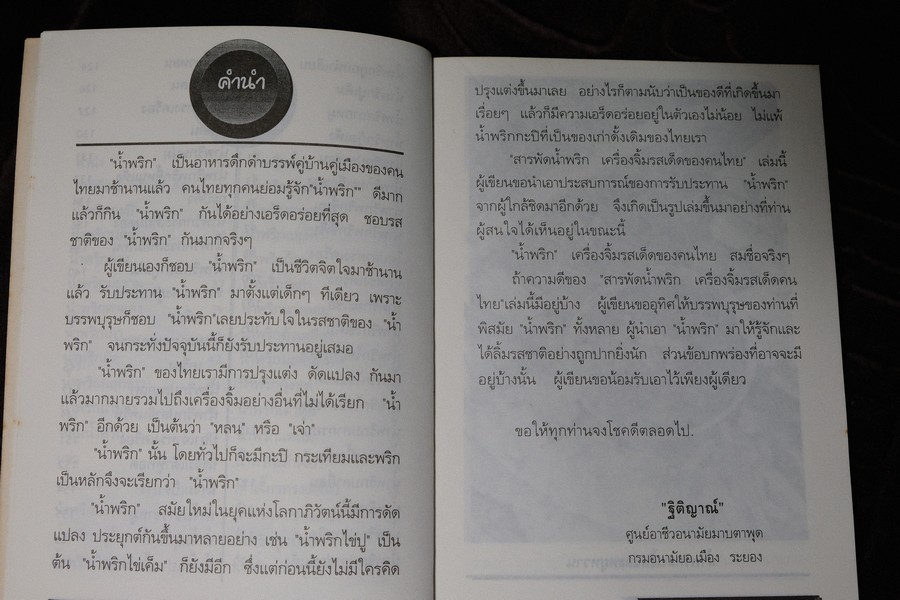 คำนำ
"น้ำพริก" เป็นอาหารดึกดำบรรพ์คู่บ้านคู่เมืองของคน
ไทยมาช้านานแล้ว คนไทยทุกคนย่อมรู้จัก"น้ำพริก"" ดีมาก
แล้วก็กิน "น้ำพริก" กันได้อย่างเอร็ดอร่อยที่สุด ชอบรส
ชาติของ "น้ำพริก" กันมากจริงๆ
ผู้เขียนเองก็ชอบ "น้ำพริก" เป็นชีวิตจิตใจมาช้านาน
แล้ว รับประทาน "น้ำพริก" มาตั้งแต่เด็กๆ ทีเดียว เพราะ
บรรพบุรุษก็ชอบ "น้ำพริก"เลยประทับใจในรสชาติของ "น้ำ
พริก" จนกระทั่งปัจจุบันนี้ก็ยังรับประทานอยู่เสมอ
"น้ำพริก" ของไทยเรามีการปรุงแต่ง ดัดแปลง กันมา
แล้วมากมายรวมไปถึงเครื่องจิ้มอย่างอื่นที่ไม่ได้เรียก "น้ำ
พริก" อีกด้วย เป็นต้นว่า "หลน" หรือ "เจ่า"
"น้ำพริก" นั้น โดยทั่วไปก็จะมีกะปิ กระเทียมและพริก
เป็นหลักจึงจะเรียกว่า "น้ำพริก"
"น้ำพริก" สมัยใหม่ในยุคแห่งโลกาภิวัตน์นี้มีการดัด
แปลง ประยุกต์กันขึ้นมาหลายอย่าง เช่น "น้ำพริกไข่ปู" เป็น
ต้น "น้ำพริกไข่เค็ม" ก็ยังมีอีก ซึ่งแต่ก่อนนี้ยังไม่มีใครคิด
ปรุงแต่งขึ้นมาเลย อย่างไรก็ตามนับว่าเป็นของดีที่เกิดขึ้นมา
เรื่อยๆ แล้วก็มีความเอร็ดอร่อยอยู่ในตัวเองไม่น้อย ไม่แพ้
น้ำพริกกะปิที่เป็นของเก่าดั้งเดิมของไทยเรา
"สารพัดน้ำพริก เครื่องจิ้มรสเด็ดของคนไทย" เล่มนี้
ผู้เขียนขอนำเอาประสบการณ์ของการรับประทาน "น้ำพริก"
จากผู้ใกล้ชิดมาอีกด้วย จึงเกิดเป็นรูปเล่มขึ้นมาอย่างที่ท่าน
ผู้สนใจได้เห็นอยู่ในขณะนี้
"น้ำพริก" เครื่องจิ้มรสเด็ดของคนไทย สมชื่อจริงๆ
ถ้าความดีของ "สารพัดน้ำพริก เครื่องจิ้มรสเด็ดคน
ไทย"เล่มนี้มีอยู่บ้าง ผู้เขียนขออุทิศให้บรรพบุรุษของท่านที่
พิสมัย "น้ำพริก" ทั้งหลาย ผู้นำเอา "น้ำพริก" มาให้รู้จักและ
ได้ลิ้มรสชาติอย่างถูกปากยิ่งนัก ส่วนข้อบกพร่องที่อาจจะมี
อยู่บ้างนั้น ผู้เขียนขอน้อมรับเอาไว้เพียงผู้เดียว
ขอให้ทุกท่านจงโชคดีตลอดไป.
"ฐิติญาณ์"
ศูนย์อาชีวอนามัยมาบตาพุด
กรมอนามัยอ.เมือง ระยอง